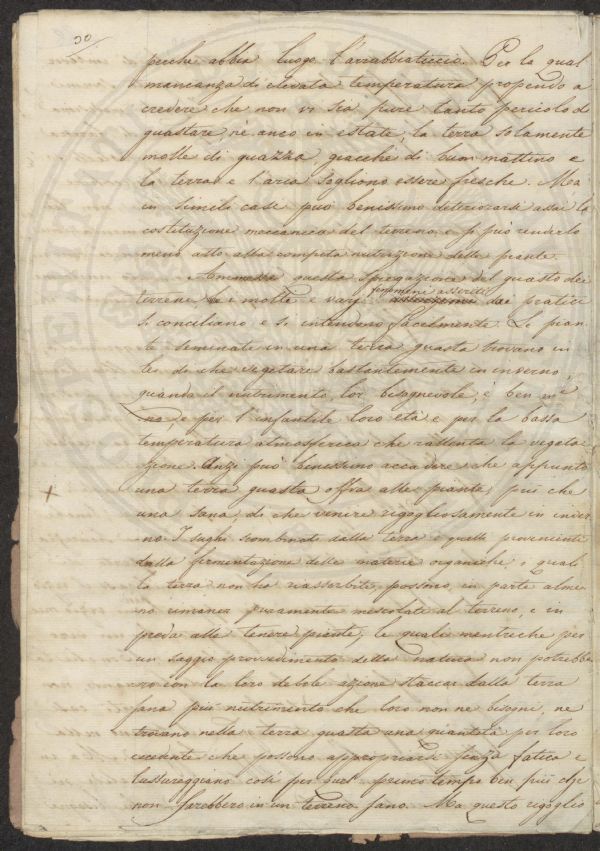 30
perche abbia luogo l'arrabbiaticcio. Per la qual
mancanza di elevata temperatura propendo a
credere che non vi sia pure tanto pericolo di
guastare, nè anco in estate, la terra solamente
molle di guazza, giacchè di buon mattino e
la terra e l'aria sogliono essere fresche. Ma
in simili casi può benissimo deteriorarsi assai la
costituzione meccanica del terreno, e si può renderlo
meno atto alla compita nutrizione delle piante.
Ammessa questa spiegazione del guasto dei
fenomeni asseriti
terreni, i molti e varj asserzioni dai pratici
si conciliano, e si intendono facilmente. Le pian-
te seminate in una terra guasta trovano in
lei di che vegetare bastantemente in inverno,
quando il nutrimento lor bisognevole, è ben me
no, e per l'infantile loro età e per la bassa
temperatura atmosferica che rallenta la vegeta
zione. Anzi può benissimo accadere che appunto
+ una terra guasta offra alle piante, più che
una sana, di che venire rigogliosamente in inver
no. I sughi scombinati dalla terra e quelli provenienti
dalla fermentazione delle materie organiche, i quali
la terra non ha riassorbiti, possono, in parte alme
no rimaner puramente mescolati al terreno, e in
preda alle tenere piante, le quali mentrechè per
un saggio provvedimento della natura non potrebbe
ro con la loro debole azione staccar dalla terra
sana più nutrimento che loro non ne bisogni, ne
trovano nella terra guasta una quantità per loro
eccedente che possono appropriarsi senza fatica e
lussureggiano così per quel primo tempo ben più che
non farebbero in un terreno sano. Ma questo rigoglio